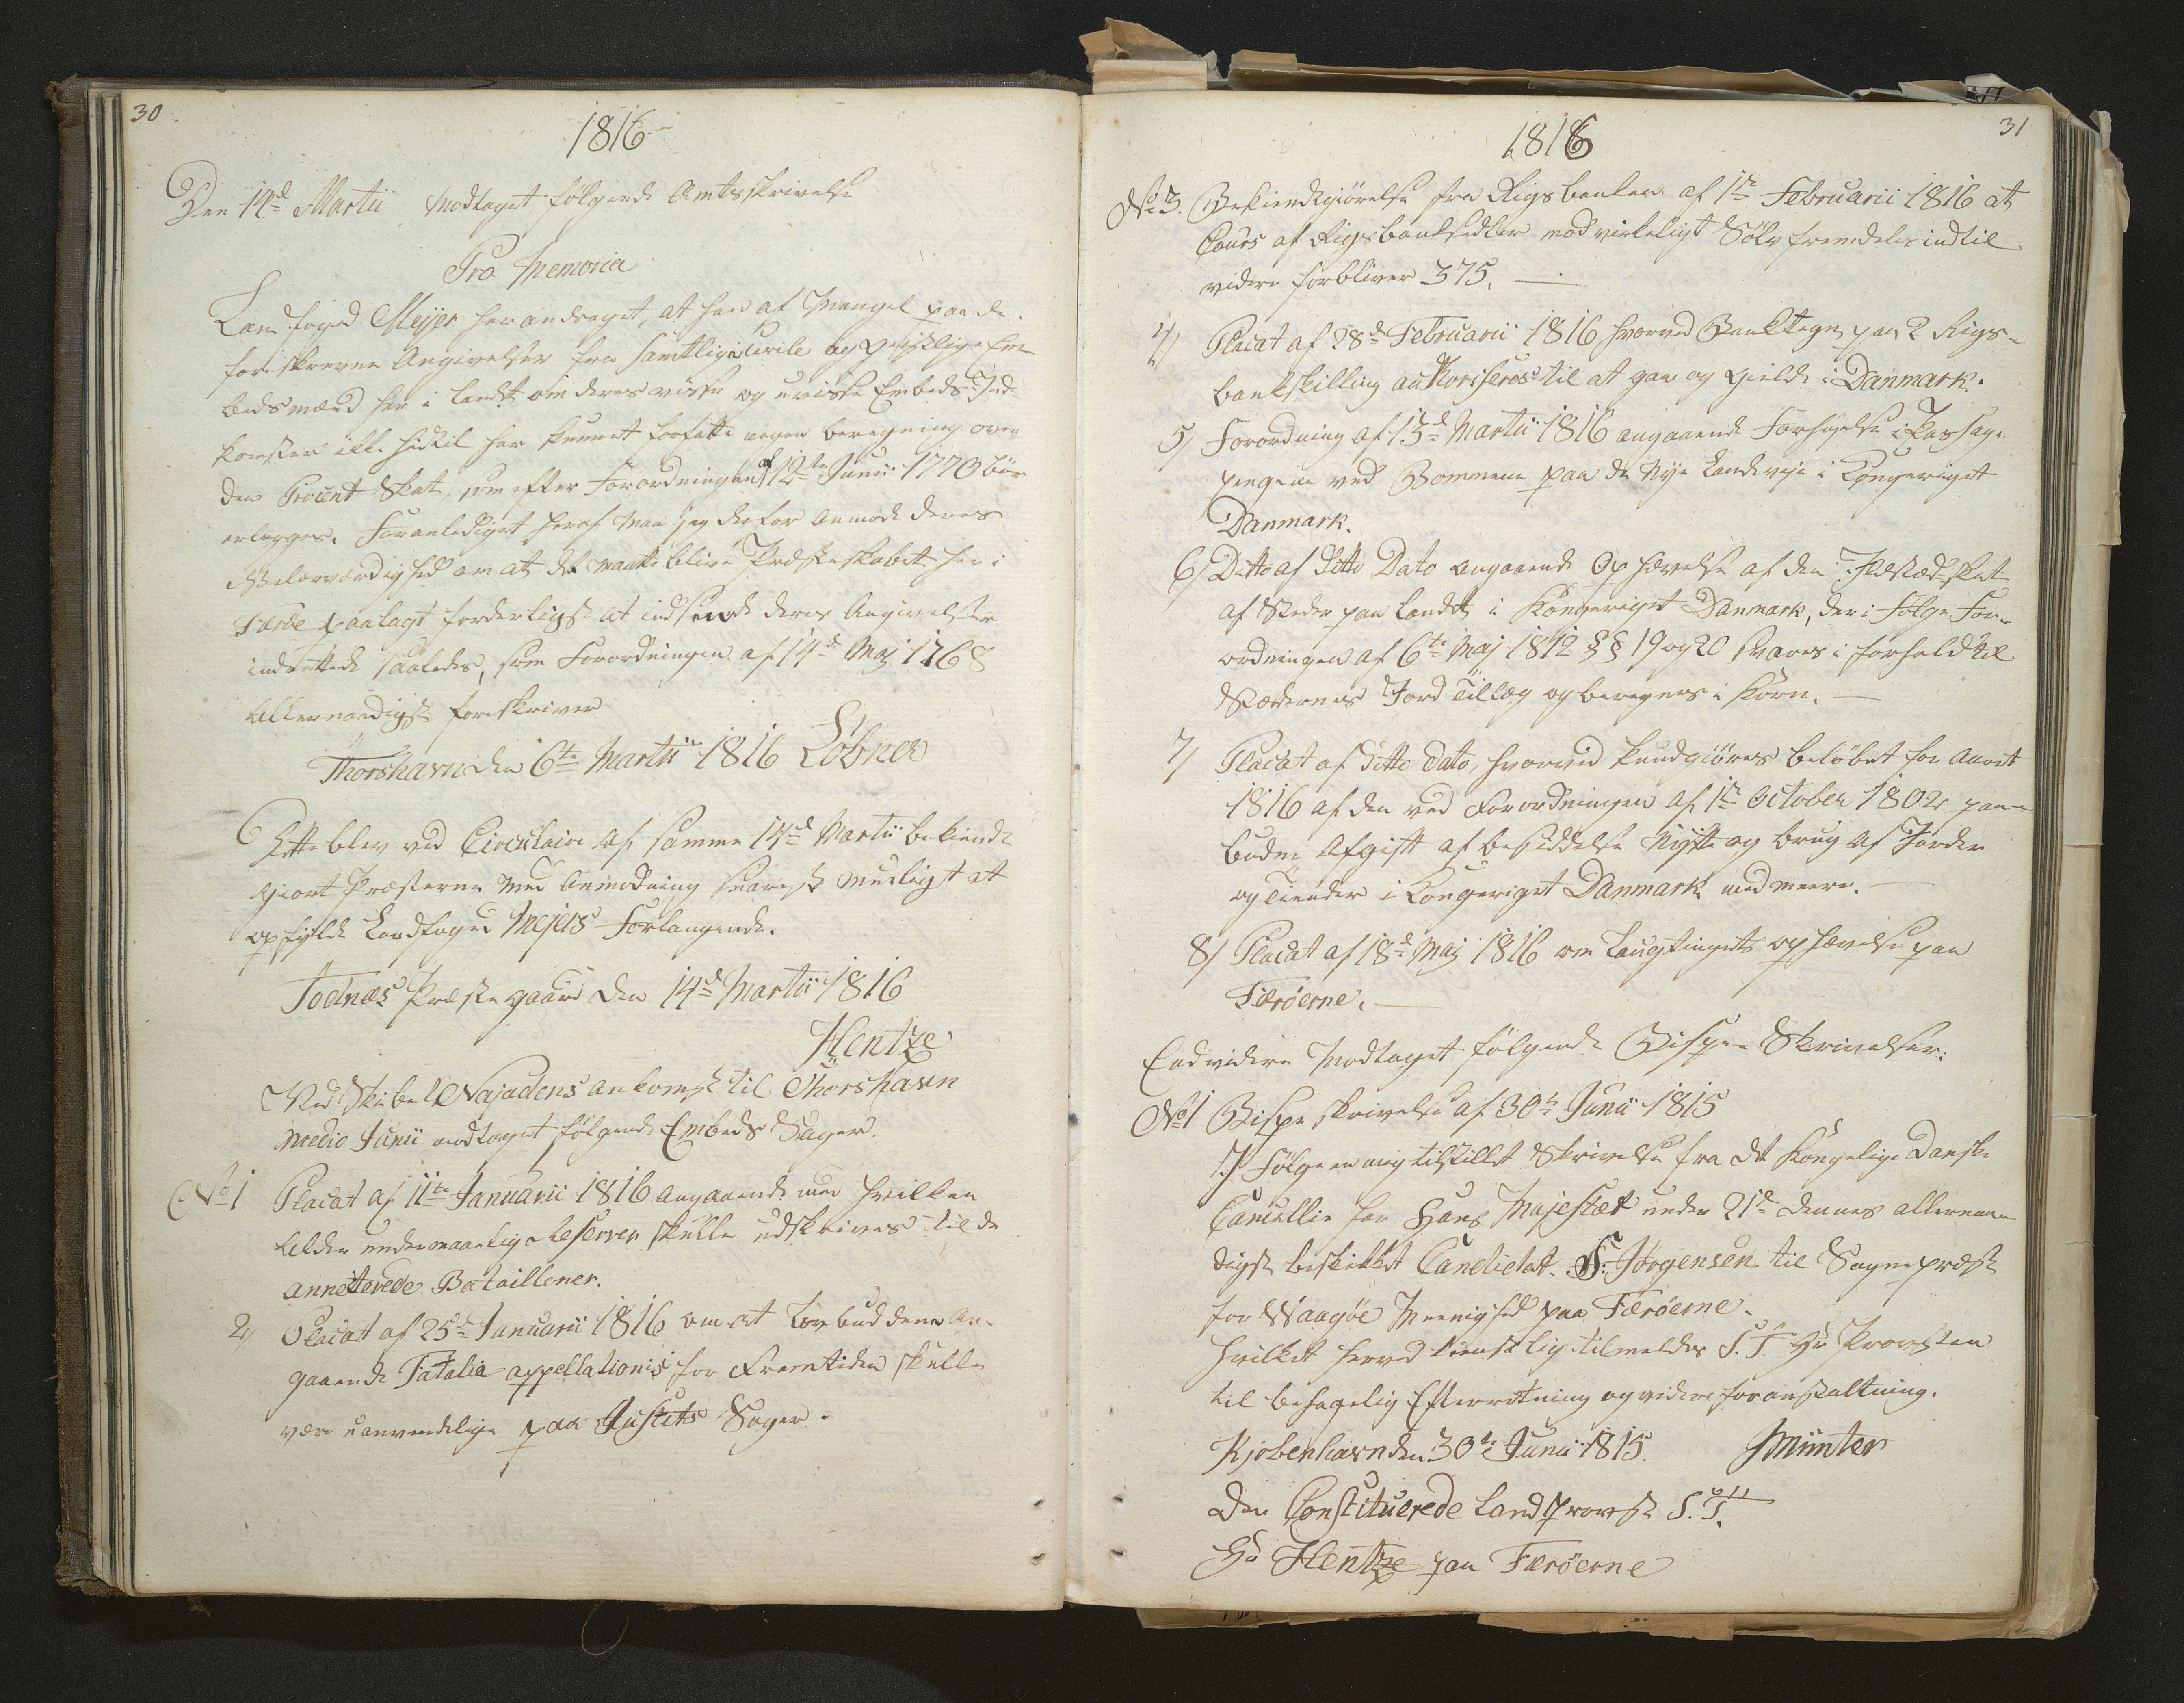 30
1816
Den 14d Martii modtaget følgende Amtsskrivelse
Pro Memoria
Landfoged Meyer har andraget, at han af Mangel paa de
foreskrevne Angivelser fra samtlige civile og geistlige Em-
bedsmænd her i Landet om deres visse og uvisse Embeds Ind-
komster ikke hidtil har kunnet forfatte nogen beregning over
den Procent Skat, som efter Forordningen af 12te Junii 1770 bør
erlægges. Foranlediget heraf maa jeg derfor anmode Deres
Velærværdighed om at det maatte blive Præsteskabet her i
Færøe paalagt forderligst at indsende deres Angivelser
indrettede saaledes, som Forordningen af 14d Maj 1768
allernaadigst foreskriver
Thorshavn den 6te Martii 1816 Løbner
Dette blev ved Circulaire af samme 14d Martii bekiendt-
giort Præsterne med Anmodning snarest mueligt at
opfylde Landfoged Mejers Forlangende.
Todnæs Præstegaard den 14d Martii 1816
Hentze
Ved Skibet Najadens Ankomst til Thorshavn
medio Junii modtaget følgende Embeds Sager.
No 1 Placat af 11te Januarii 1816 angaaende med hvilken
Alder undermaalige Reserver skulle udskrives til de
annecterede Batailloner.
2) Placat af 25d Januarii 1816 om at Lovbuddene an-
gaaende Fatalia appellationis for Fremtiden skulle
være uanvendelige paa Justits Sager.
31
1816
No 3. Bekiendtgiørelse fra Rigsbanken af 1te Februarii 1816 at
Cours af Rigsbanksedler mod virkeligt Sølv fremdeles indtil
videre forbliver 375.
4) Placat af 28d Februarii 1816 hvorved Banktegn paa 2 Rigs-
bankskilling authoriseres til at gaa og gielde i Danmark.
5) Forordning af 13d Martii 1816 angaaende Forhøielse i Passage
pengene ved Bommene paa de Nye Landeveje i Kongeriget
Danmark.
6) Ditto af ditto Dato angaaende Ophævelse af den skat
af Steder paa Landet i Kongeriget Danmark, der i Følge For-
ordningen af 6te Maj 1812 §§ 19 og 20 svares i forhold til
Stædernes Jord Tillæg og beregnes i Korn.
7) Placat af ditto Dato, hvorved kundgiøres beløbet for Aaret
1816 af den ved Forordningen af 1te October 1802 paa-
budne Afgift af besiddelse Nytte og brug af Jorder
og Tiender i Kongeriget Danmark med meere.
8) Placat af 18d Maj 1816 om Laugtingets ophævelse paa
Færøerne.
Endvidere modtaget følgende Bispe-Skrivelser:
No 1 Bispe skrivelse af 30te Junii 1815
I Følge en mig tilstillet Skrivelse fra det Kongelige Danske
Cancellie har Hans Majestæt under 21de dennes allernaa-
digst beskikket Candidat F. Jørgensen til Sognepræst
for Waagøe Meenighed paa Færøerne.
Hvilket herved tienstlig tilmeldes S. T. Hr Provsten
til behagelig Efterretning og videre foranstaltning.
Kjøbenhavn den 30te Junii 1815. Münter
Den Constituerede Landprovst S. T.
Hr Hentze paa Færøerne